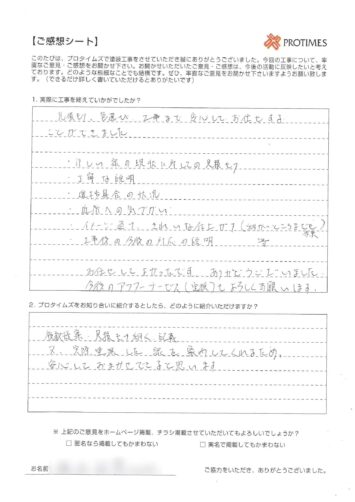 【ご感想シート】
PROTIMES
このたびは、プロタイムズで塗装工事をさせていただき誠にありがとうございました。今回の工事について、率
直なご意見・ご感想をお聞かせ下さい。お聞かせいただいたご意見・ご感想は、今後の活動に反映したいと考え
ております。どのような些細なことでも結構です。ぜひ、率直なご意見をお聞かせ下さいますようお願い致しま
す。（できるだけ詳しく書いていただけるとありがたいです）
1. 実際に工事を終えていかがでしたか？
見積り、色選び、工事まで安心してお任せする
ことができました
・詳しい家の現状に対しての見積もり
・丁寧な説明
・進捗具合の状況
・近所への気づかい
・イメージ通り、きれいな仕上がり
・工事後の今後の対応の説明 等
お任せしてよかったです。ありがとうございました。
今後のアフターサービスもよろしくお願いします。
2. プロタイムズをお知り合いに紹介するとしたら、どのように紹介いただけますか？
見積もり
又、実際塗装した
安心しておまかせできると思います
※ 上記のご意見をホームページ掲載、チラシ掲載させていただいてもよろしいでしょうか？
□ 匿名なら掲載してもかまわない □ 実名で掲載してもかまわない
お名前
ご協力をいただき、ありがとうございました。